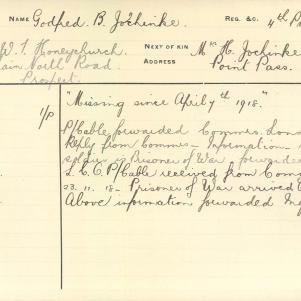 NAME Godfred. B. Jochinke. REG. &C. 4th P
W. T. Honeychurch. NEXT OF KIN Mrs H. Jochinke
ain North Road ADDRESS Point Pass.
Prospect.
"Missing since April 7th 1918."
1/P P/Cable forwarded Commrs. Lon
Reply from Commrs - Information -
soldier is Prisoner of War forwarded
L. C. C. P/Cable received from Com
23. 11. 18 - Prisoner of War arrived E
Above information forwarded